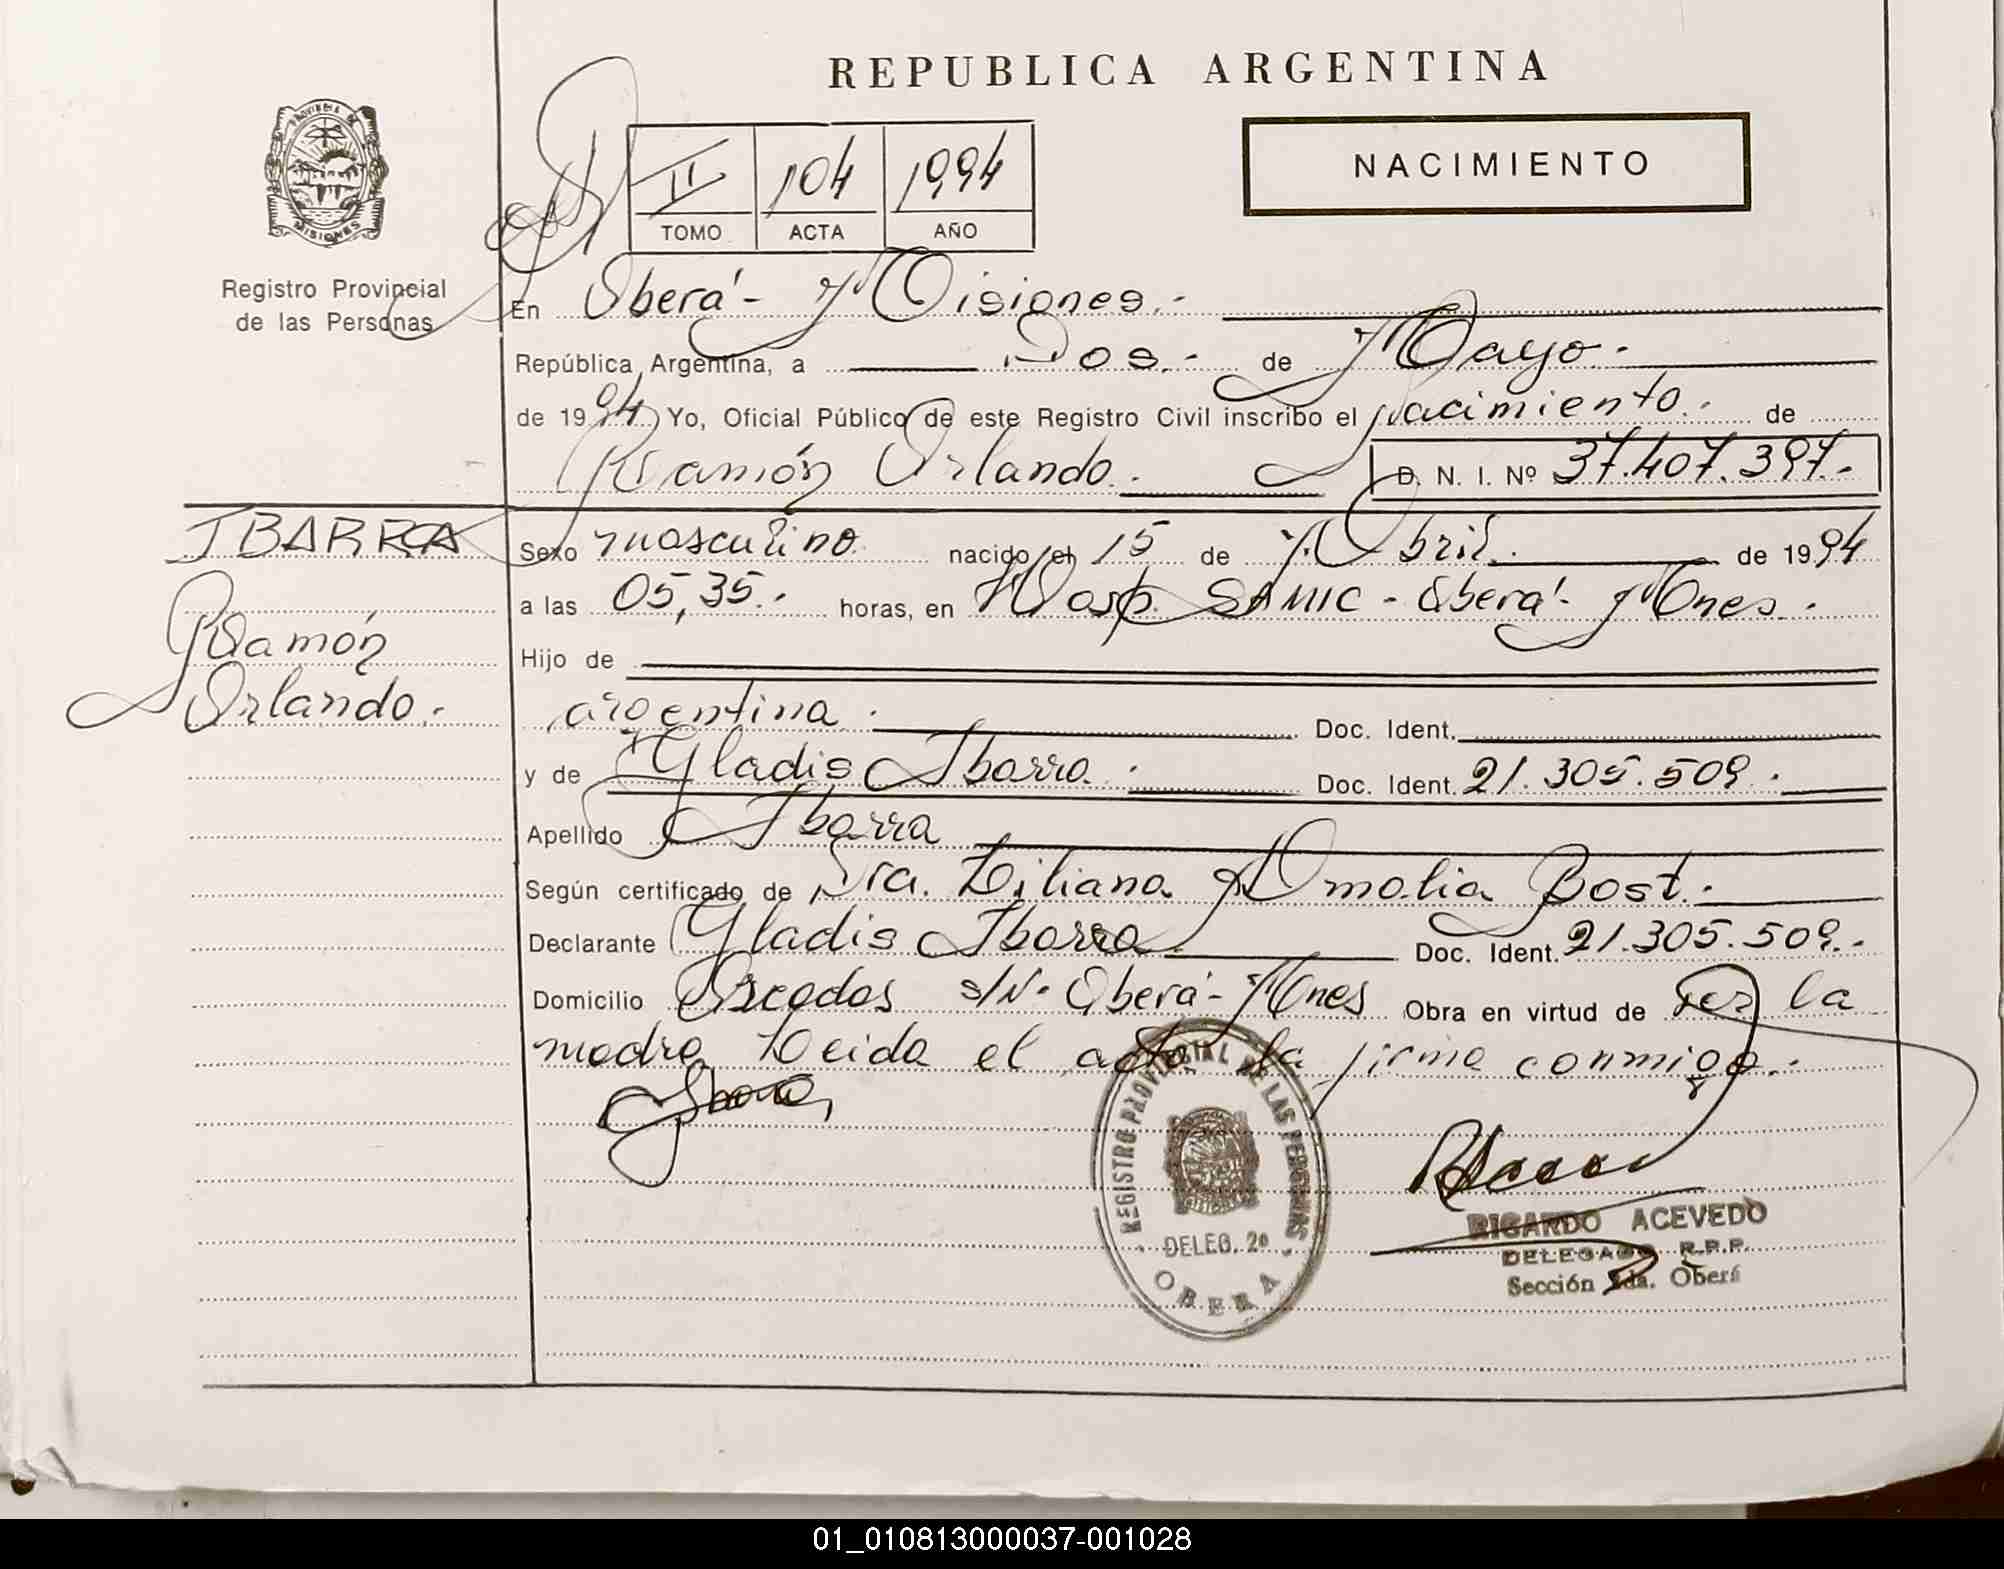 REPUBLICA ARGENTINA
PROVINCIA DE
MISIONES
NACIMIENTO
II 104 1994
TOMO ACTA AÑO
Registro Provincial
de las Personas
En Oberá - Misiones.-
República Argentina, a Dos.- de Mayo.-
de 1994 Yo, Oficial Público de este Registro Civil inscribo el Nacimiento.- de
Ramón Orlando.- D. N. I. Nº 37.407.397.-
IBARRA
Ramón
Orlando.-
Sexo masculino nacido el 15 de Abril.- de 1994
a las 05,35.- horas, en Hosp. SAMIC - Oberá - Mnes.-
Hijo de
argentina.- Doc. Ident.
y de Gladis Ibarra.- Doc. Ident. 21.305.509.-
Apellido Ibarra
Según certificado de Dra. Liliana Amalia Bost.-
Declarante Gladis Ibarra Doc. Ident. 21.305.509.-
Domicilio s/N- Oberá - Mnes Obra en virtud de ser la
madre Leida el acta la firma conmigo.-
REGISTRO PROVINCIAL DE LAS PERSONAS
DELEG. 2ª
OBERA
RICARDO ACEVEDO
DELEGADO R.P.P.
Sección 2da. Oberá
01_010813000037-001028